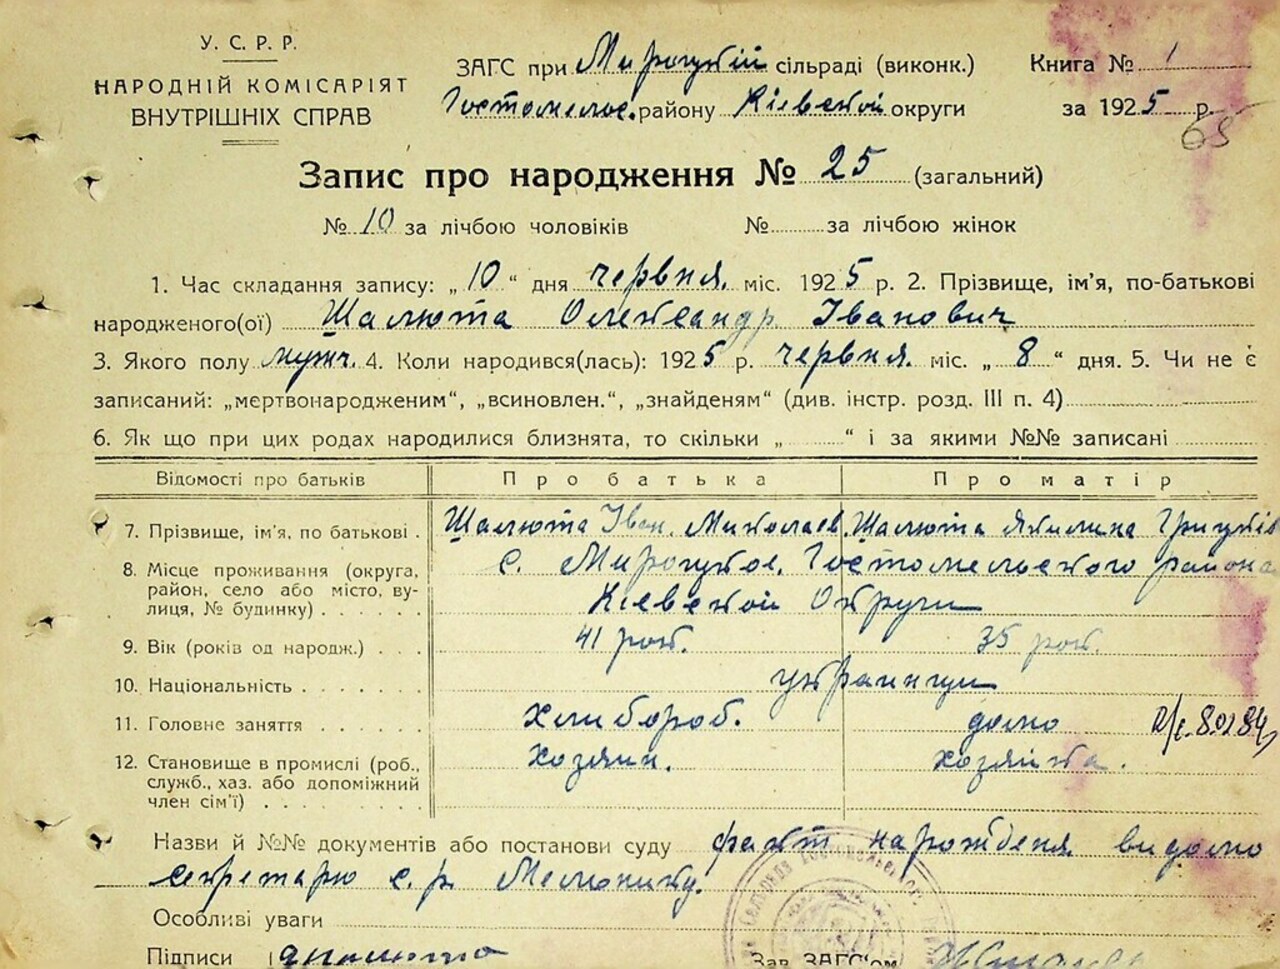 У. С. Р. Р.
НАРОДНІЙ КОМІСАРІЯТ
ВНУТРІШНІХ СПРАВ
ЗАГС при Мироцкій сільраді (виконк.)
Гостомельс. району Кіевской округи
Книга № 1
за 1925 р.
65
Запис про народження № 25 (загальний)
№ 10 за лічбою чоловіків № за лічбою жінок
1. Час складання запису: „10“ дня червня. міс. 1925 р. 2. Прізвище, ім'я, по-батькові
народженого(ої) Шалюта Олександр Іванович
3. Якого полу мужч. 4. Коли народився(лась): 1925 р. червня. міс. „8“ дня. 5. Чи не є
записаний: „мертвонародженим“, „всиновлен.“, „знайденям“ (див. інстр. розд. III п. 4)
6. Як що при цих родах народилися близнята, то скільки „ “ і за якими №№ записані
Відомості про батьків Про батька Про матір
7. Прізвище, ім'я, по батькові . Шалюта Іван. Миколаев. Шалюта Якилина
8. Місце проживання (округа, с. Мироцкое, Гостомельского района
район, село або місто, ву-
лиця, № будинку) Кіевской Округи
9. Вік (років од народж.) 41 рок. 35 рок.
10. Національність украинци
11. Головне заняття хлибороб. домо
12. Становище в промислі (роб., хозяин. хозяйка.
служб., хаз. або допоміжний
член сім'ї)
Назви й №№ документів або постанови суду факт народженя видомо
секретарю с. р. Мельнику.
Особливі уваги
Підписи
Зав. ЗАГС'ом